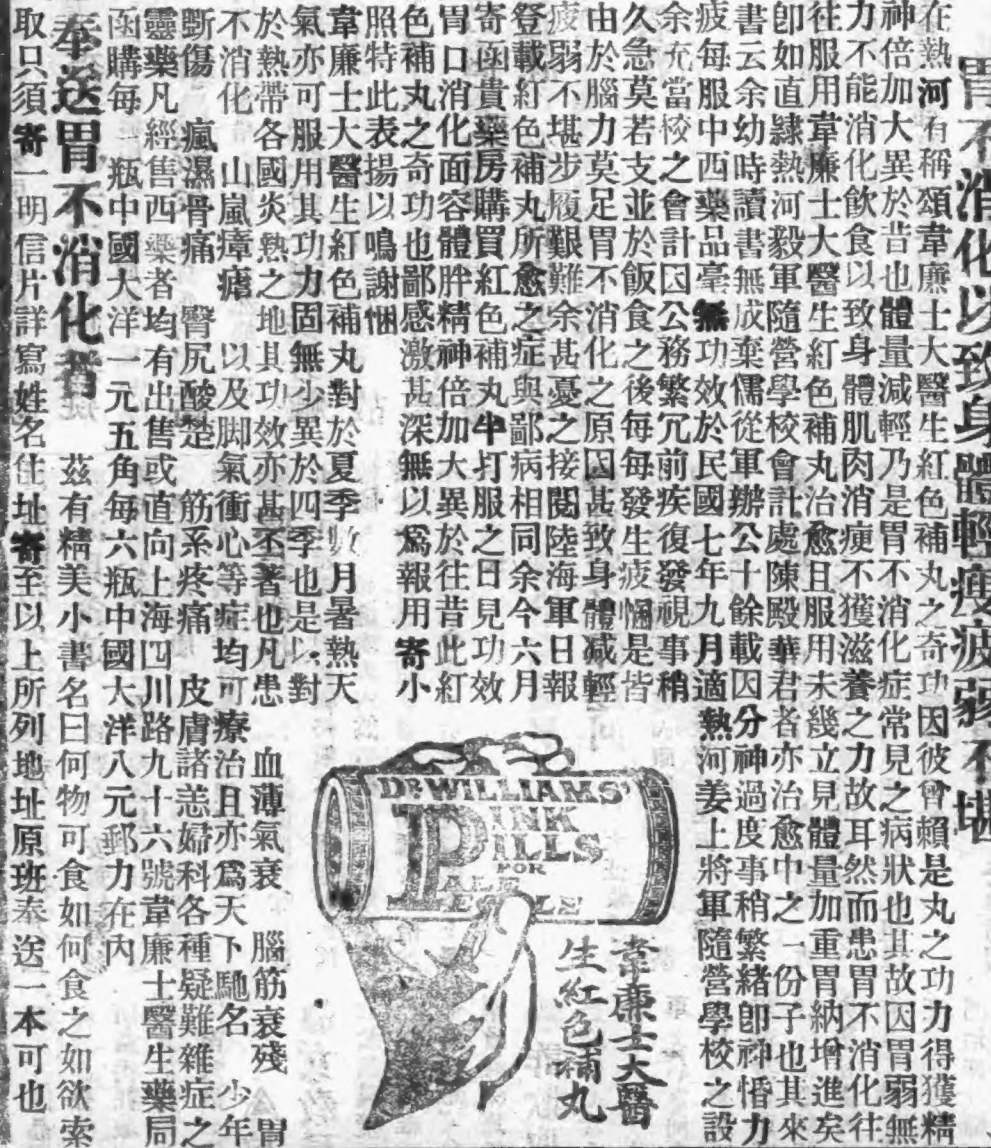 胃不消化以致身體輕瘦疲弱不堪
在熱河有稱頌韋廉士大醫生紅色補丸之奇功因彼曾賴是丸之功力得獲精
神倍加大異於昔也體量減輕乃是胃不消化症常見之病狀也其故因胃弱無
力不能消化飲食以致身體肌肉消瘦不獲滋養之力故耳然而患胃不消化往
往服用韋廉士大醫生紅色補丸治愈且服用未幾立見體量加重胃納增進矣
卽如直隸熱河毅軍隨營學校會計處陳殿華君者亦治愈中之一份子也其來
書云余幼時讀書無成棄儒從軍辦公十餘載因分神過度事稍繁緒卽神惛力
疲每服中西藥品毫無功效於民國七年九月適熱河姜上將軍隨營學校之設
余充當校之會計因公務繁冗前疾復發視事稍
久急莫若支並於飯食之後每每發生疲懶是皆
由於腦力莫足胃不消化之原因甚致身體減輕
疲弱不堪步履艱難余甚憂之接閱陸海軍日報
登載紅色補丸所愈之症與鄙病相同余今六月
寄函貴藥房購買紅色補丸半打服之日見功效
胃口消化面容體胖精神倍加大異於往昔此紅
色補丸之奇功也鄙感激甚深無以爲報用寄小
照特此表揚以鳴謝悃
DR WILLIAMS'
PINK
PILLS
FOR
PALE
PEOPLE
韋廉士大醫
生紅色補丸
韋廉士大醫生紅色補丸對於夏季數月暑熱天
氣亦可服用其功力固無少異於四季也是以對
於熱帶各國炎熱之地其功效亦甚丕著也凡患 血薄氣衰 腦筋衰殘 胃
不消化 山嵐瘴瘧 以及脚氣衝心等症均可療治且亦爲天下馳名 少年
斷傷 瘋濕骨痛 醫尻酸楚 筋系疼痛 皮膚諸恙婦科各種疑難雜症之
靈藥凡經售西藥者均有出售或直向上海四川路九十六號韋廉士醫生藥局
函購每一瓶中國大洋一元五角每六瓶中國大洋八元郵力在內
奉送胃不消化者 茲有精美小書名曰何物可食如何食之如欲索
取只須寄一明信片詳寫姓名住址寄至以上所列地址原班奉送一本可也